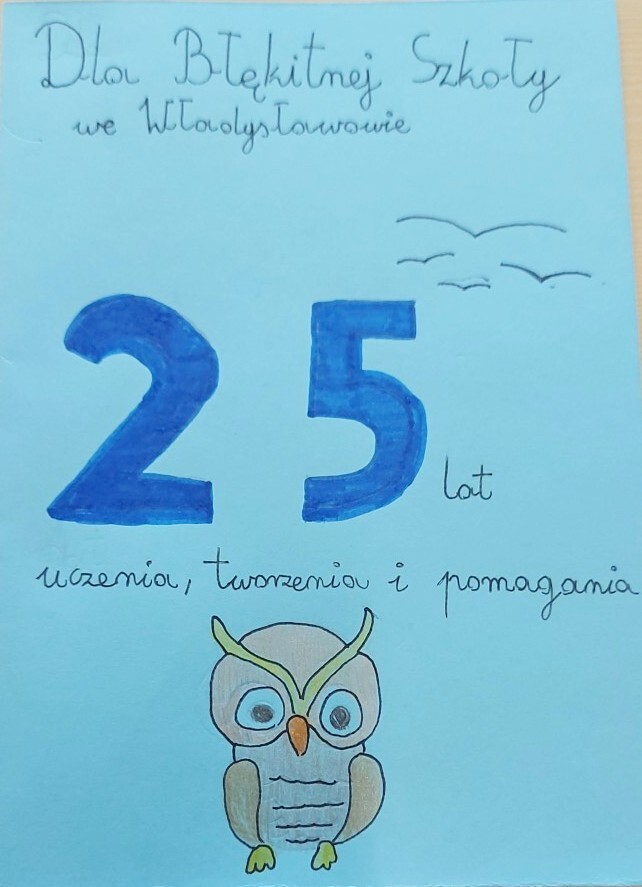 Dla Błękitnej Szkoły
we Władysławowie
25 lat
uczenia, tworzenia i pomagania